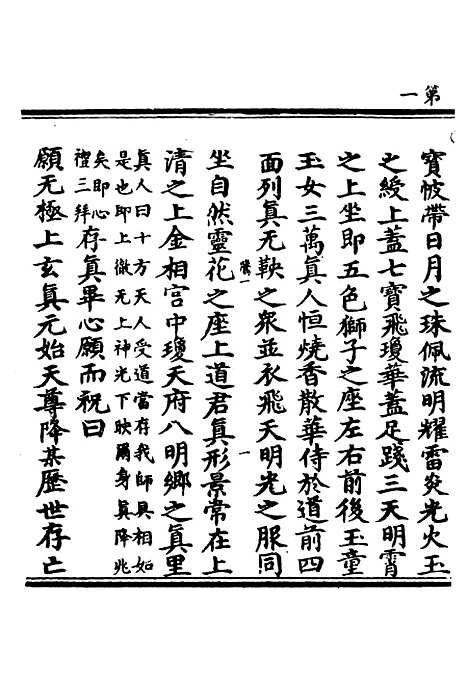 第一
寶帔帶日月之珠佩流明耀雷炎光火玉
之綬上蓋七寶飛瓊華蓋足踐三天明霄
之上坐即五色獅子之座左右前後玉童
玉女三萬真人恒燒香散華侍於道前四
面列真无鞅之衆並衣飛天明光之服同
坐自然靈花之座上道君真形景常在上
清之上金相宫中瓊天府八明鄉之真里
真人曰十方天人受道當存我師具相如
是也即上徹无上神光下映爾身真降兆
矣即心
禮三拜
存真畢心願而祝曰
願无極上玄真元始天尊降某歷世存亡